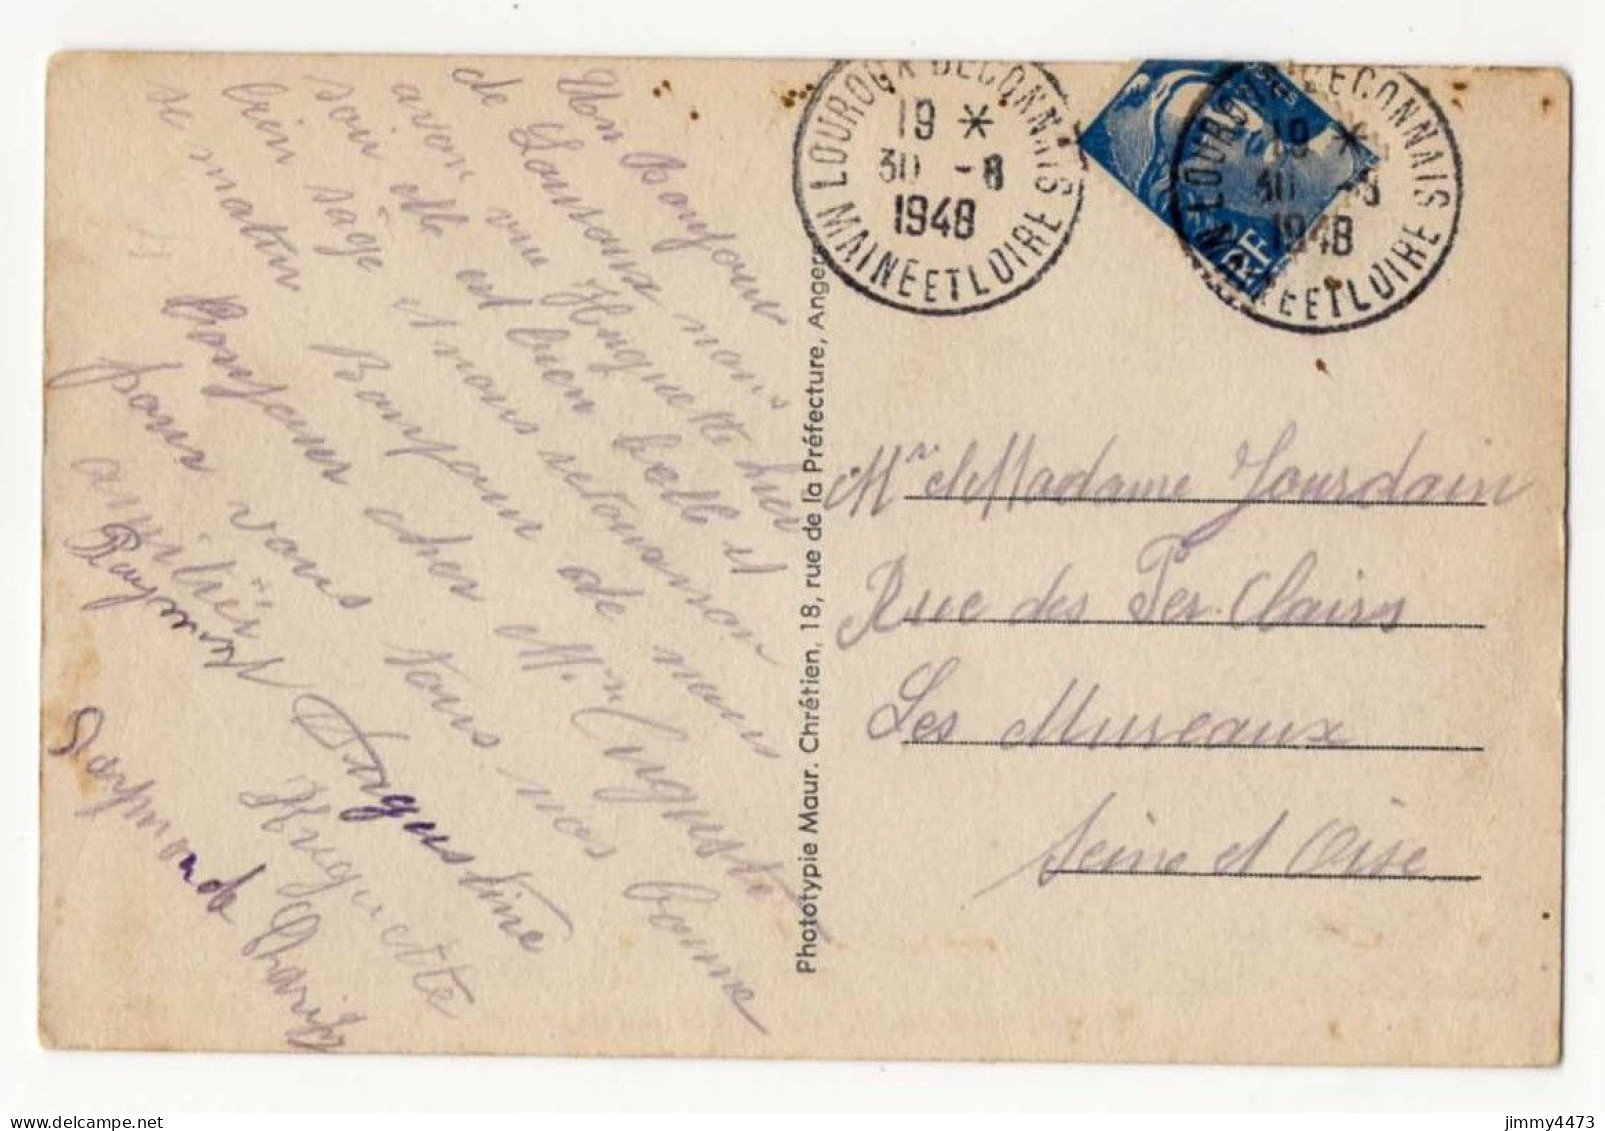 Un Bonjour
de Louroux nous
avons vue Huguette hier
soir elle est bien belle et
bien sage et nous retournon
ce matin Bonjour de nous
Bonjour cher
pour vous tous nos bonne
amitiés
Raymond Augustine
Huguette
Raymonde
LOUROUX BECONNAIS
19 *
30 -8
1948
MAINE ET LOIRE
LOUROUX BECONNAIS
19 *
30 -8
1948
MAINE ET LOIRE
RF
Phototypie Maur. Chrétien, 18, rue de la Préfecture, Angers
Mr et Madame Jourdain
Rue des
Les Mureaux
Seine et Oise
jimmy4473